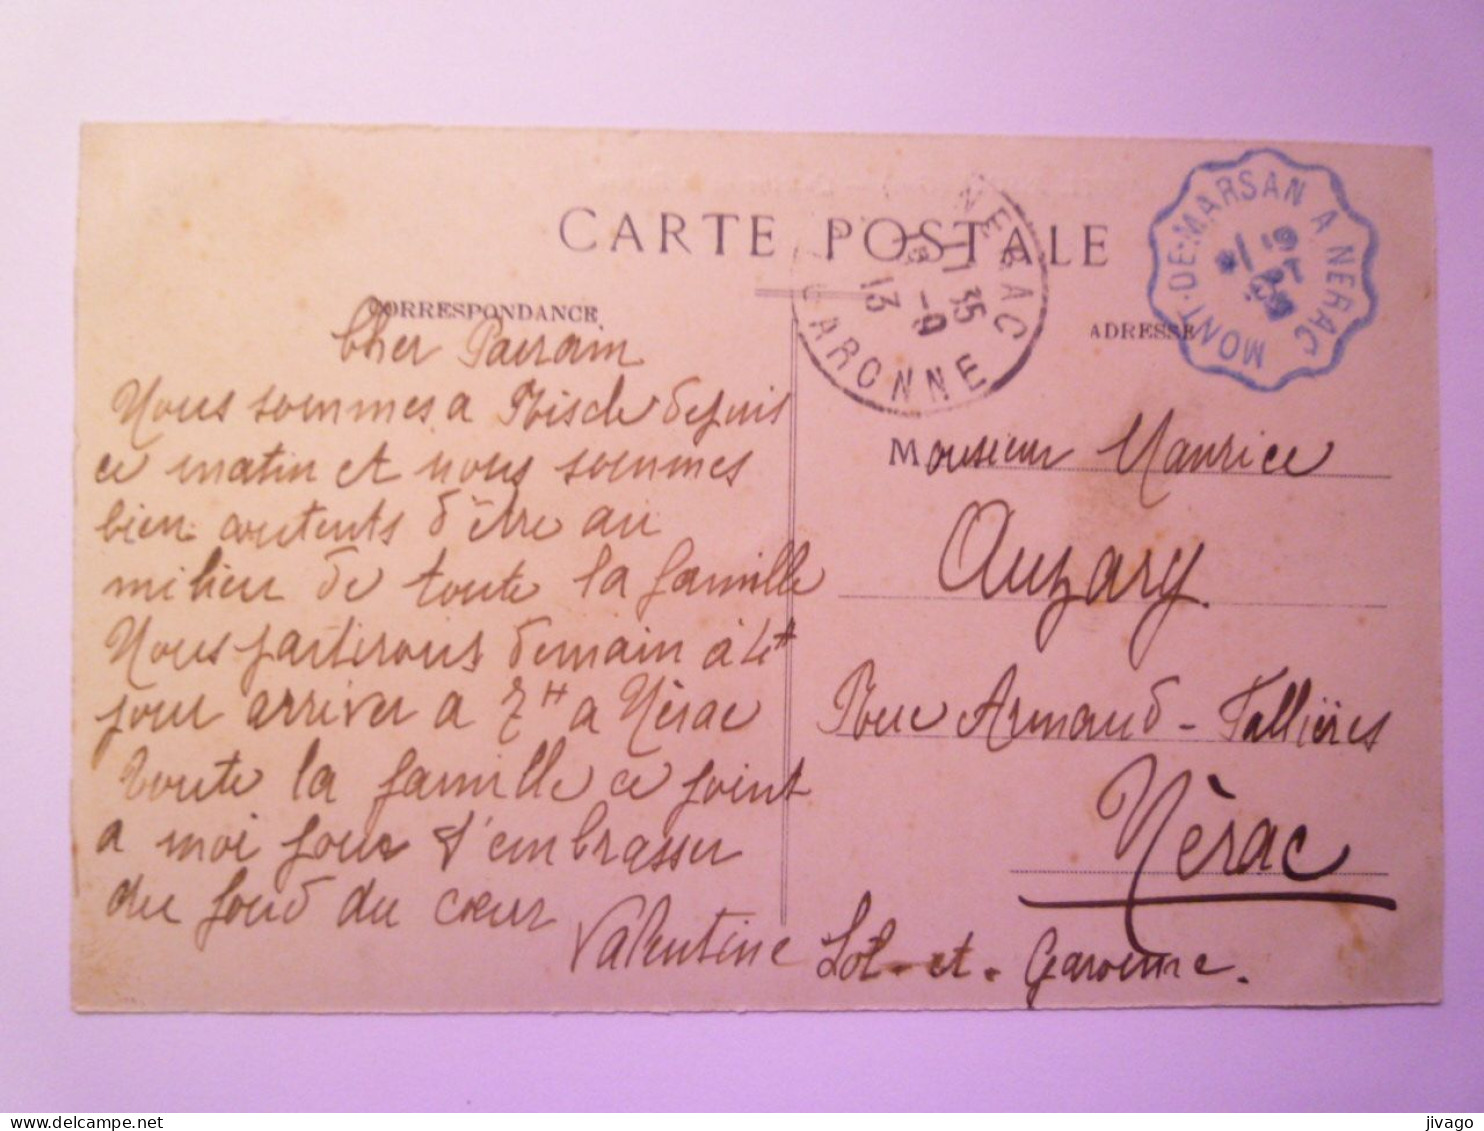 CARTE POSTALE
CORRESPONDANCE
Cher Parrain
Nous sommes a Riscle depuis
ce matin et nous sommes
bien contents d'être au
milieu de toute la famille
Nous partirons demain à 4H
pour arriver a 7H a Nèrac
Toute la famille ce joint
a moi pour t'embrasser
du fond du cœur
Valentine
NERAC
GARONNE
35
13
MONT-DE-MARSAN A NERAC
ADRESSE
Monsieur Maurice
Auzary
Rue Armand-Fallières
Nèrac
Lot-et-Garonne.
jivago